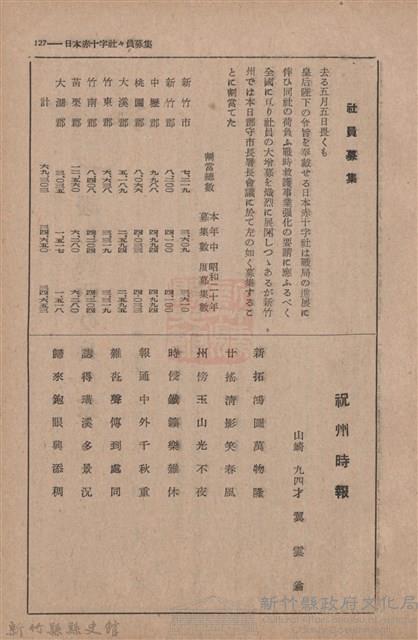 127——日本赤十字社々員募集
社員募集
去る五月五日畏くも
皇后陛下の令旨を奉戴せる日本赤十字社は戰局の進展に
伴ひ同社の荷負ふ戰時救護事業强化の要請に應ふるべく
全國に亙り社員の大增募を熾烈に展開しつゝあるが新竹
州では本日郡守市長署長會議に於て左の如く募集するこ
とに割當てた
割當總數 本年中募集數 昭和二十年度募集數
新竹市 七二一九 三六〇九 三六一〇
新竹郡 八二〇〇 四一〇〇 四一〇〇
中壢郡 九九八八 四九九四 四九九四
桃園郡 八〇六六 四〇三三 四〇三三
大溪郡 五一八九 二五九四 二五九五
竹東郡 六六三八 三三一九 三三一九
竹南郡 八四〇八 四二〇四 四二〇四
苗栗郡 一二五六〇 六二八〇 六二八〇
大湖郡 三〇三五 一五一七 一五一八
計 六九三〇三 三四六五〇 三四六五三
祝州時報
山崎 九四才 翼雲翁
新拓鴻圖萬物隆
竹搖清影笑春風
州傍玉山光不夜
時傍鐵鑛樂難休
報通中外千秋重
雜聲傳到處同
誌得璜溪多景況
歸來飽眼興添稠
新竹縣縣史館
新竹縣政府文化局